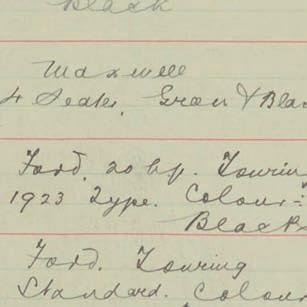 Black
Maxwell
4 Seater, Green & Bla
Ford. 20 hp. Tourin
1923 Type. Colour:-
Black
Ford. Touring
Standard. Colou